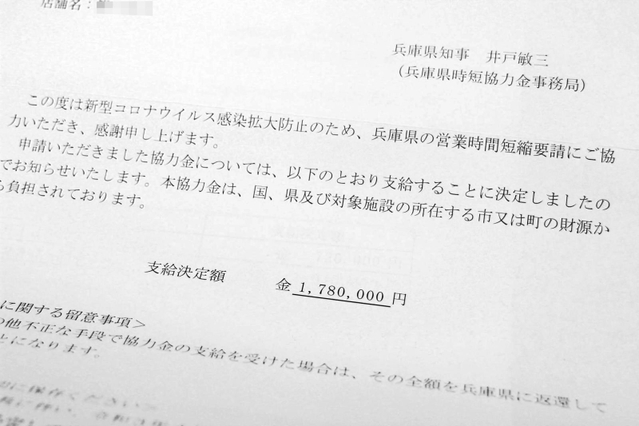 店舗名：
兵庫県知事　井戸敏三
（兵庫県時短協力金事務局）
この度は新型コロナウイルス感染拡大防止のため、兵庫県の営業時間短縮要請にご協
力いただき、感謝申し上げます。
申請いただきました協力金については、以下のとおり支給することに決定しましたの
でお知らせいたします。本協力金は、国、県及び対象施設の所在する市又は町の財源か
ら負担されております。
支給決定額　金 1,780,000 円
に関する留意事項＞
の他不正な手段で協力金の支給を受けた場合は、その全額を兵庫県に返還して
とになります。
に保存ください＞